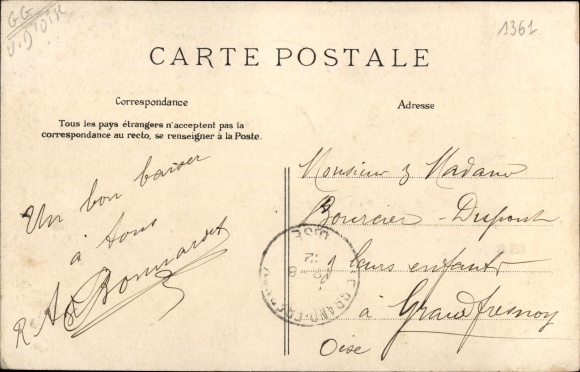 GG
V. d'Oise
1361
CARTE POSTALE
Correspondance
Tous les pays étrangers n'acceptent pas la
correspondance au recto, se renseigner à la Poste.
Un bon baiser
à tous
Bonnardet
Adresse
Monsieur & Madame
Bourcier-Dupont
& leurs enfants
à Grandfresnoy
Oise
GRANDFRESNOY
12 8
OISE